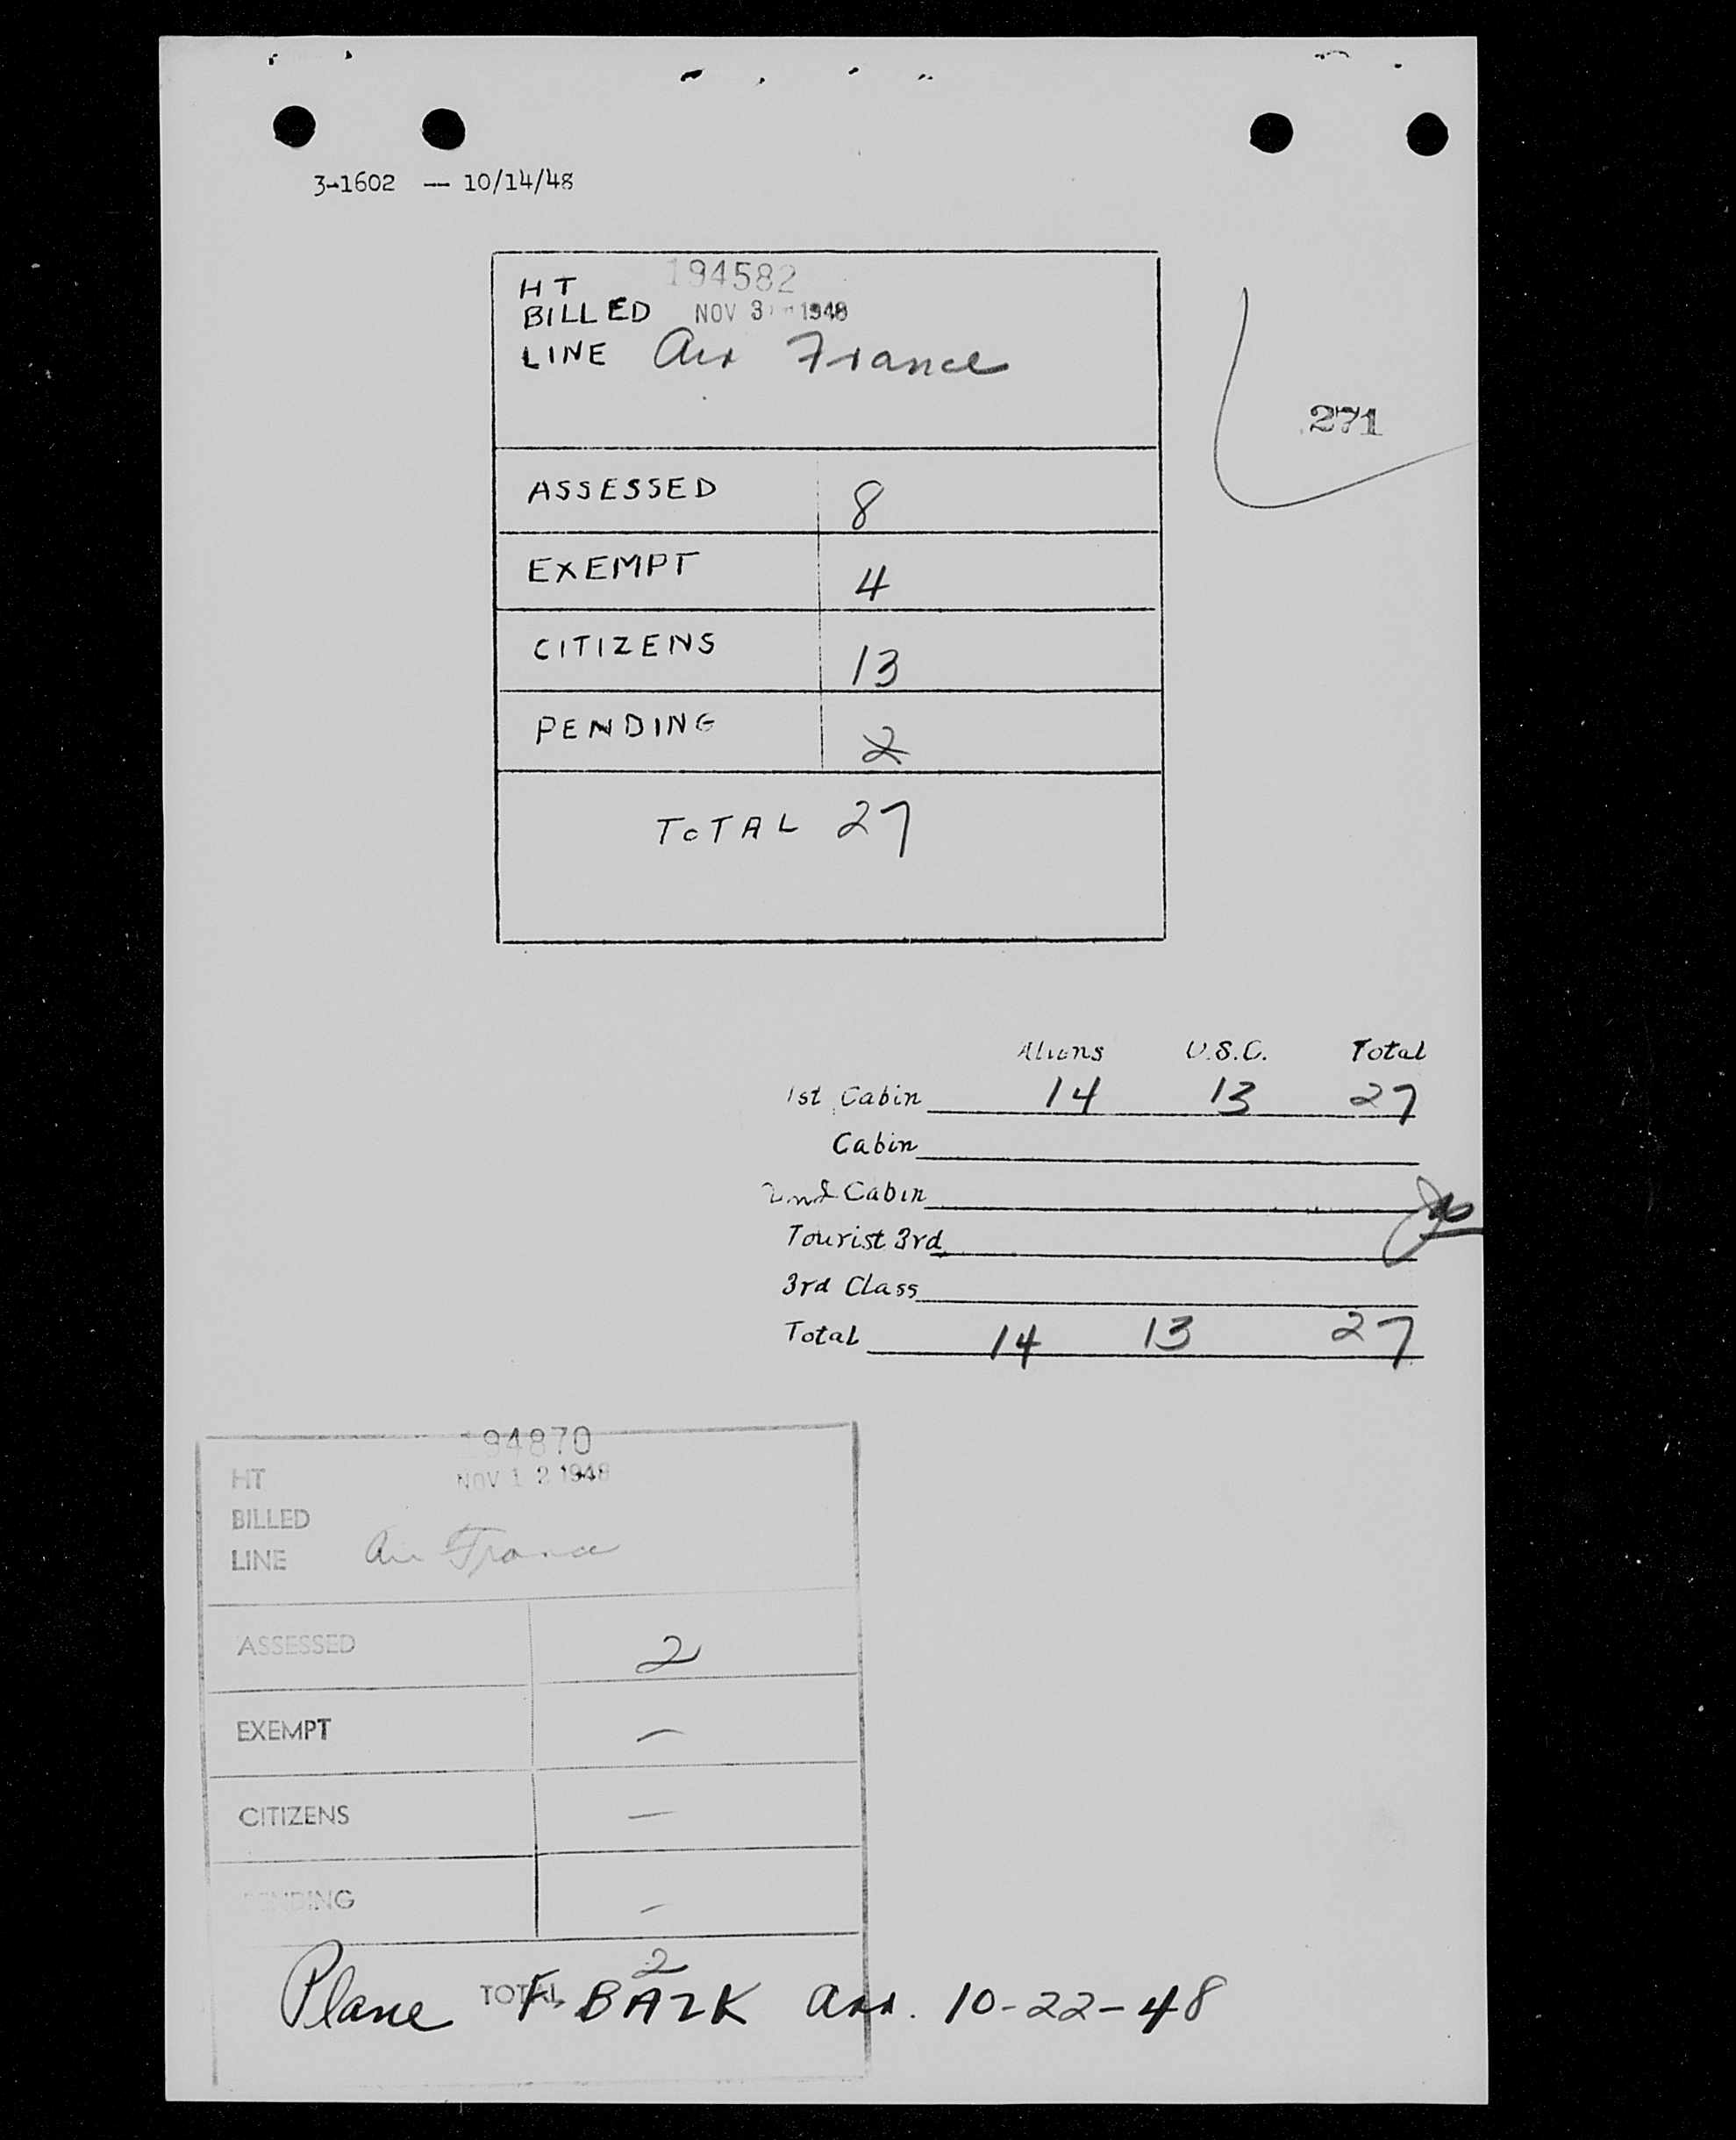 3-1602 -- 10/14/48
HT 194582
BILLED NOV 3 1948
LINE Air France
271
ASSESSED 8
EXEMPT 4
CITIZENS 13
PENDING 2
TOTAL 27
Aliens U.S.C. Total
1st Cabin 14 13 27
Cabin
2nd Cabin
Tourist 3rd
3rd Class
Total 14 13 27
194870
HT NOV 12 1948
BILLED
LINE Air France
ASSESSED 2
EXEMPT —
CITIZENS —
PENDING —
TOTAL 2
Plane F. BAZK arr. 10-22-48